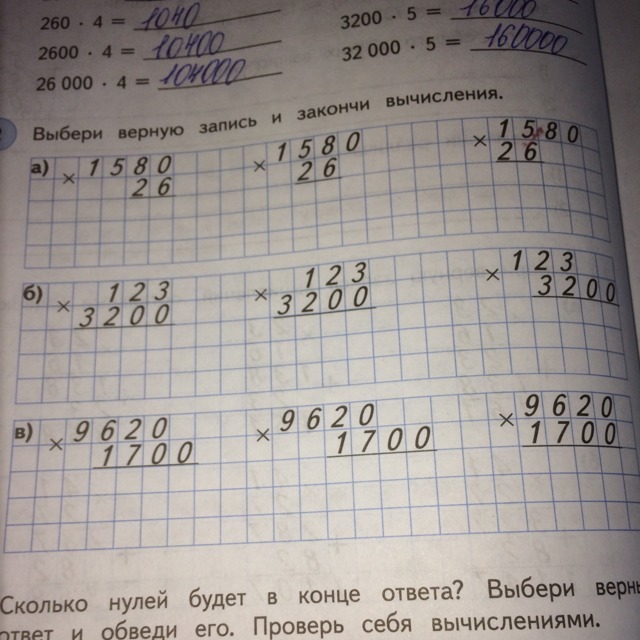 260 · 4 = 1040
2600 · 4 = 10400
26 000 · 4 = 104000
3200 · 5 = 16000
32 000 · 5 = 160000
Выбери верную запись и закончи вычисления.
а) × 1580 × 1580 × 1580
26 26 26
б) × 123 × 123 × 123
3200 3200 3200
в) × 9620 × 9620 × 9620
1700 1700 1700
Сколько нулей будет в конце ответа? Выбери верны
ответ и обведи его. Проверь себя вычислениями.